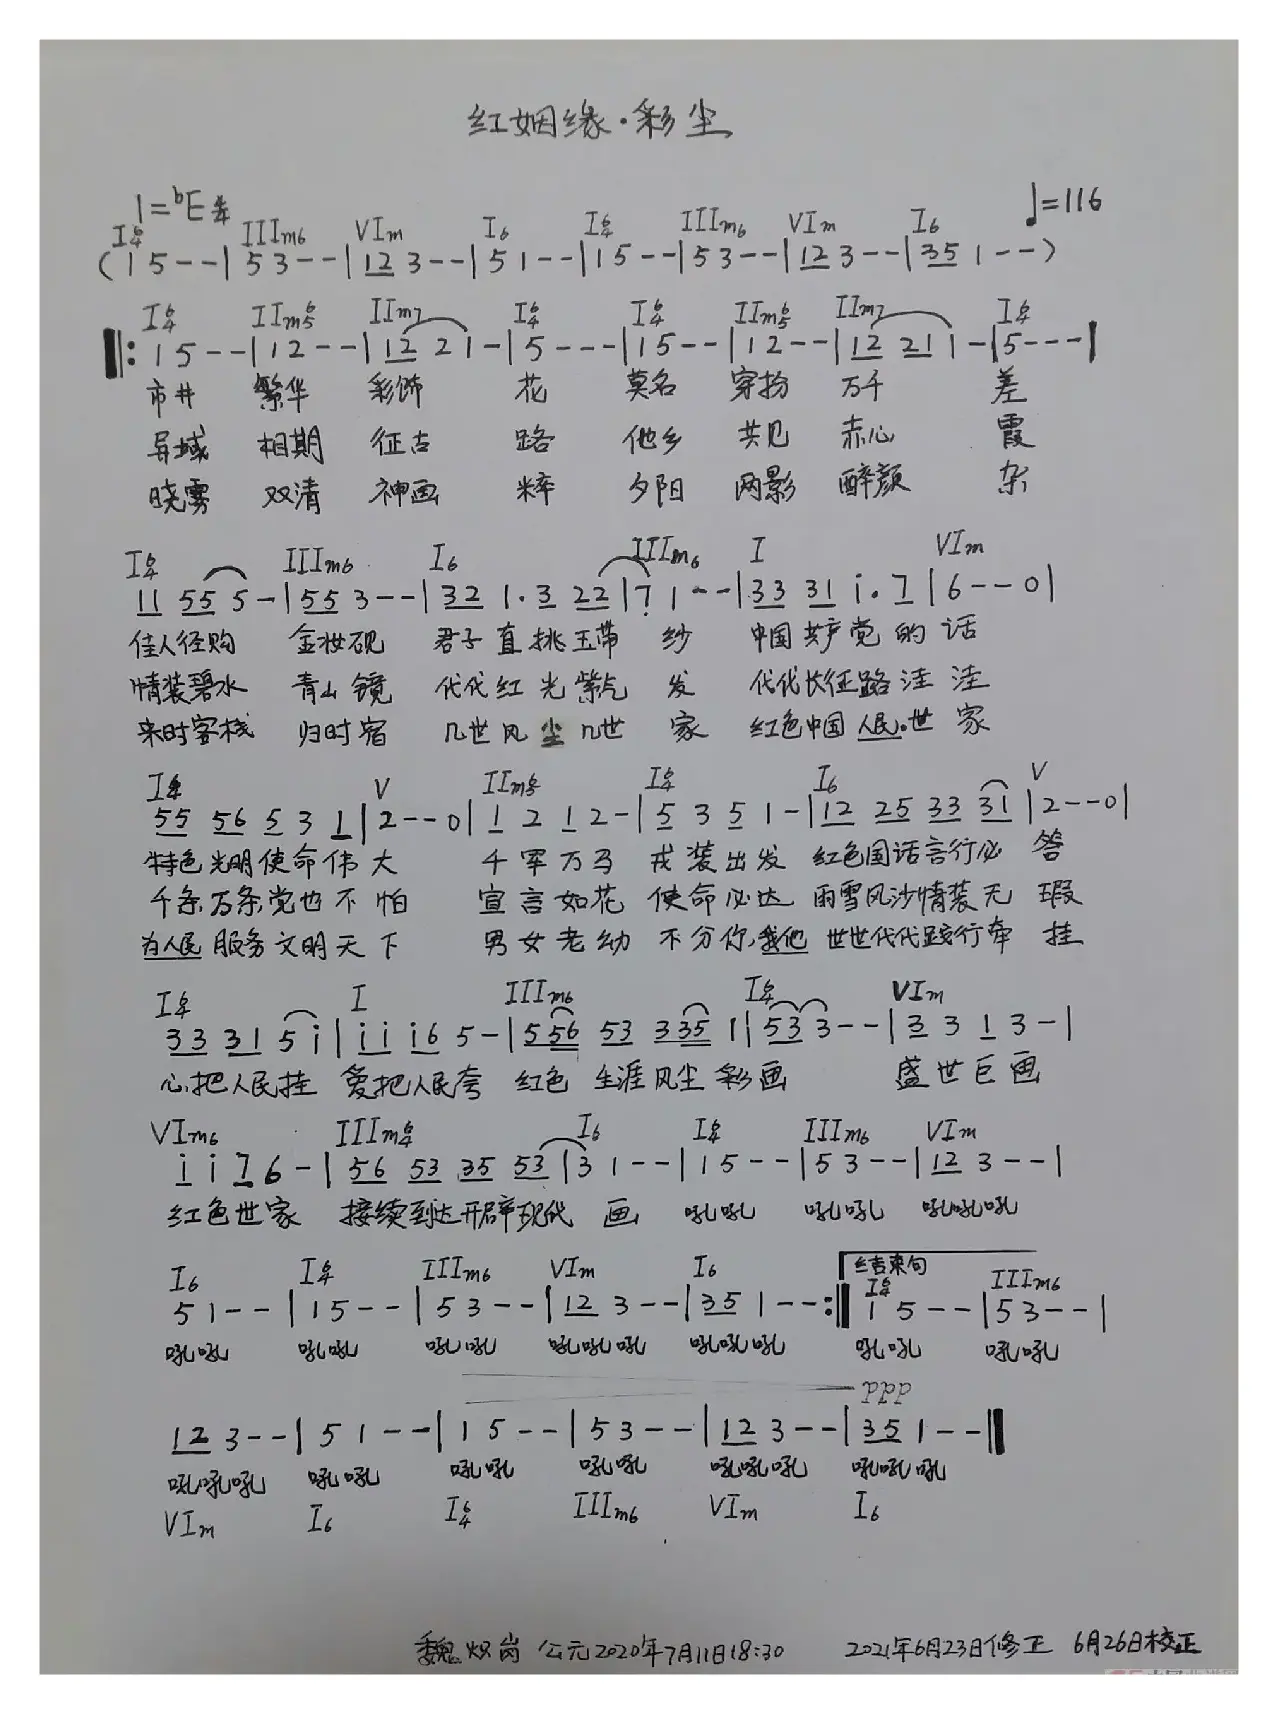 红姻缘·彩尘
1=♭E 4/4 ♩=116
I6/4 IIIm6 VIm I6 I6/4 IIIm6 VIm I6
(1 5 - - | 5 3 - - | 12 3 - - | 5 1 - - | 1 5 - - | 5 3 - - | 12 3 - - | 35 1 - - )
I6/4 IIm6/5 IIm7 I6/4 I6/4 IIm6/5 IIm7 I6/4
‖: 1 5 - - | 1 2 - - | 12 2 1 - | 5 - - - | 1 5 - - | 1 2 - - | 12 21 1 - | 5 - - - |
市井 繁华 彩饰 花 莫名 穿扮 万千 差
异域 相期 征古 路 他乡 共见 赤心 霞
晓雾 双清 神画 粹 夕阳 两影 醉颜 杂
I6/4 IIIm6 I6 IIIm6 I VIm
11 55 5 - | 55 3 - - | 32 1 · 3 22 | 7̣ 1 - - | 33 31 i · 7 | 6 - - 0 |
佳人径购 金妆砚 君子直挑玉带 纱 中国共产党的话
情装碧水 青山镜 代代红光紫气 发 代代长征路洼洼
来时客栈 归时宿 几世风尘几世 家 红色中国人民·世家
I6/4 V IIm6/5 I6/4 I6 V
55 56 5 3 1 | 2 - - 0 | 1 2 1 2 - | 5 3 5 1 - | 12 25 33 31 | 2 - - 0 |
特色光明使命伟大 千军万马 戎装出发 红色国话言行必 答
千条万条党也不怕 宣言如花 使命必达 雨雪风沙情装无 瑕
为人民服务文明天下 男女老幼 不分你,我他 世世代代践行牵 挂
I6/4 I IIIm6 I6/4 VIm
33 31 5 i | ii i6 5 - | 556 53 335 1 | 53 3 - - | 3 3 1 3 - |
心把人民挂 爱把人民夸 红色 生涯风尘彩画 盛世巨画
VIm6 IIIm6/4 I6 I6/4 IIIm6 VIm
i i 7 6 - | 56 53 35 53 | 3 1 - - | 1 5 - - | 5 3 - - | 12 3 - - |
红色世家 接续到达开辟现代 画 吼吼 吼吼 吼吼吼
I6 I6/4 IIIm6 VIm I6 结束句 I6/4 IIIm6
5 1 - - | 1 5 - - | 5 3 - - | 12 3 - - | 35 1 - - :‖ 1 5 - - | 5 3 - - |
吼吼 吼吼 吼吼 吼吼吼 吼吼吼 吼吼 吼吼
ppp
12 3 - - | 5 1 - - | 1 5 - - | 5 3 - - | 12 3 - - | 35 1 - - ‖
吼吼吼 吼吼 吼吼 吼吼 吼吼吼 吼吼吼
VIm I6 I6/4 IIIm6 VIm I6
魏炽岗 公元2020年7月11日18:30 2021年6月23日修正 6月26日校正